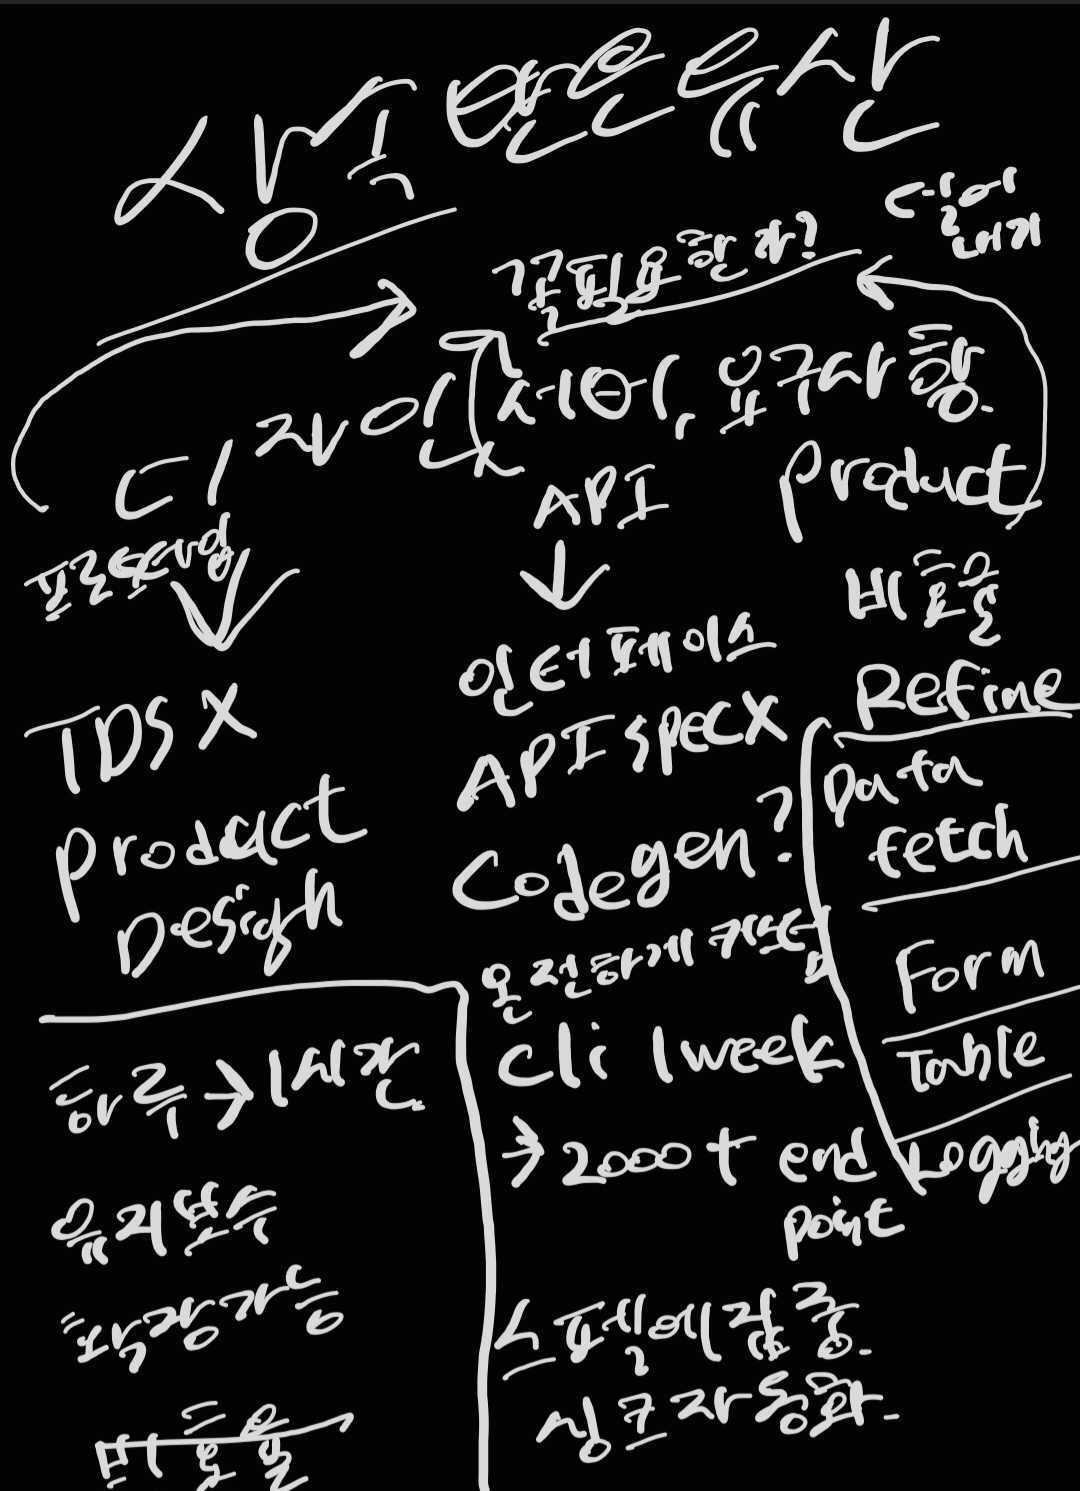 상속 받은 유산
꼭 필요한가?
덜어
내기
디자인, 서버, 요구사항.
API
product
프론트개발
비효율
인터페이스
Refine
TDS X
API spec X
Data
fetch
product
Design
Codegen?
온전하게 커버
Form
하루 → 1시간
cli 1week
Table
→ 2000+ end
point
Logging
유지보수
확장가능
스펠에 집중.
싱크 자동화.
비효율